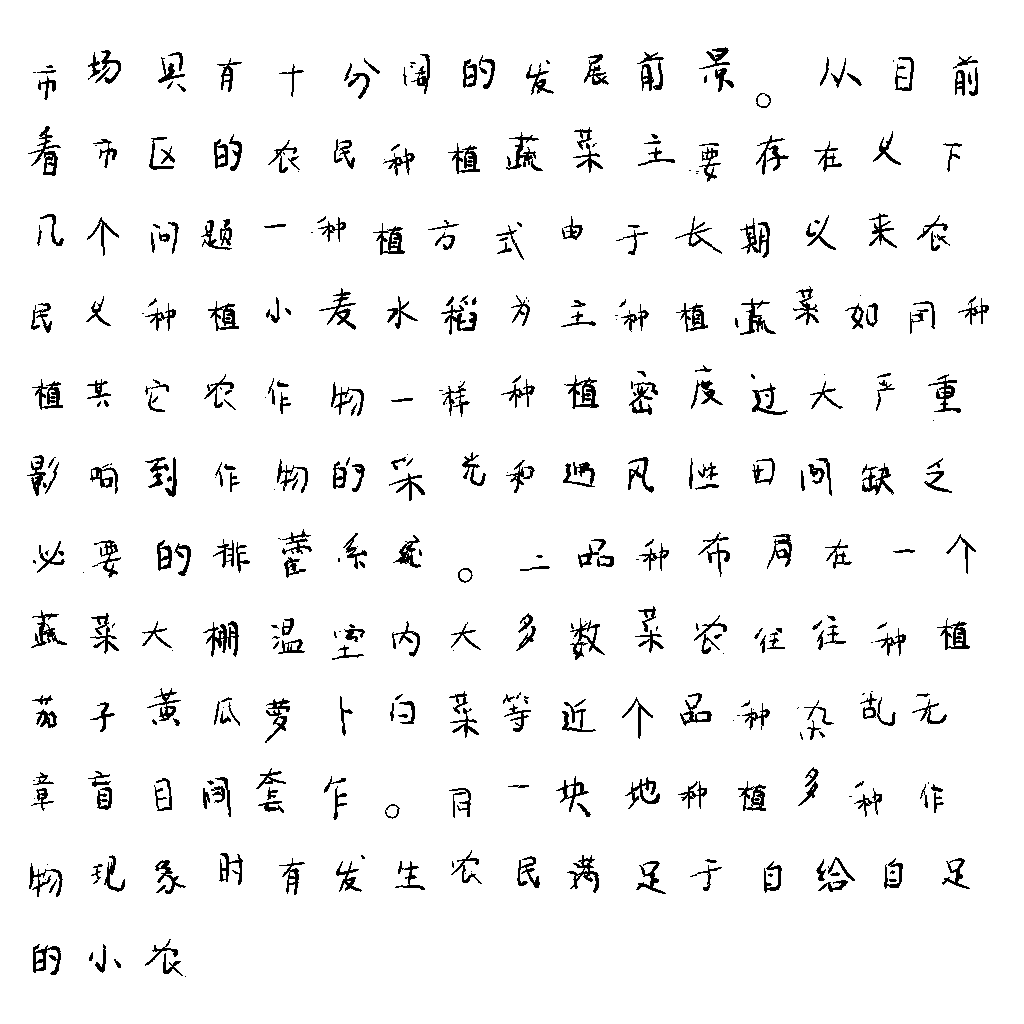 市场具有十分阔的发展前景。从目前
看市区的农民种植蔬菜主要存在义下
几个问题一种植方式由于长期以来农
民义种植小麦水稻为主种植蔬菜如同种
植其它农作物一样种植密度过大严重
影响到作物的采光和通风性田间缺乏
必要的排灌系统。二品种布局在一个
蔬菜大棚温室内大多数菜农往往种植
茄子黄瓜萝卜白菜等近个品种杂乱无
章盲目间套乍。同一块地种植多种作
物现象时有发生农民满足于自给自足
的小农